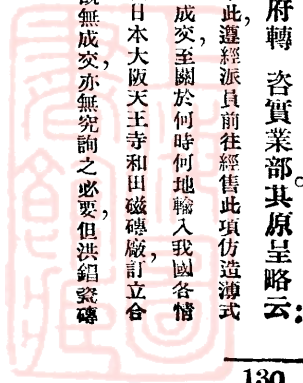 府轉　咨實業部。其原呈略云：
此，遵經派員前往經售此項仿造薄式
成交，至關於何時何地輸入我國各情
日本大阪天王寺和田磁磚廠，訂立合
無成交，亦無究詢之必要，但洪錩瓷磚
130